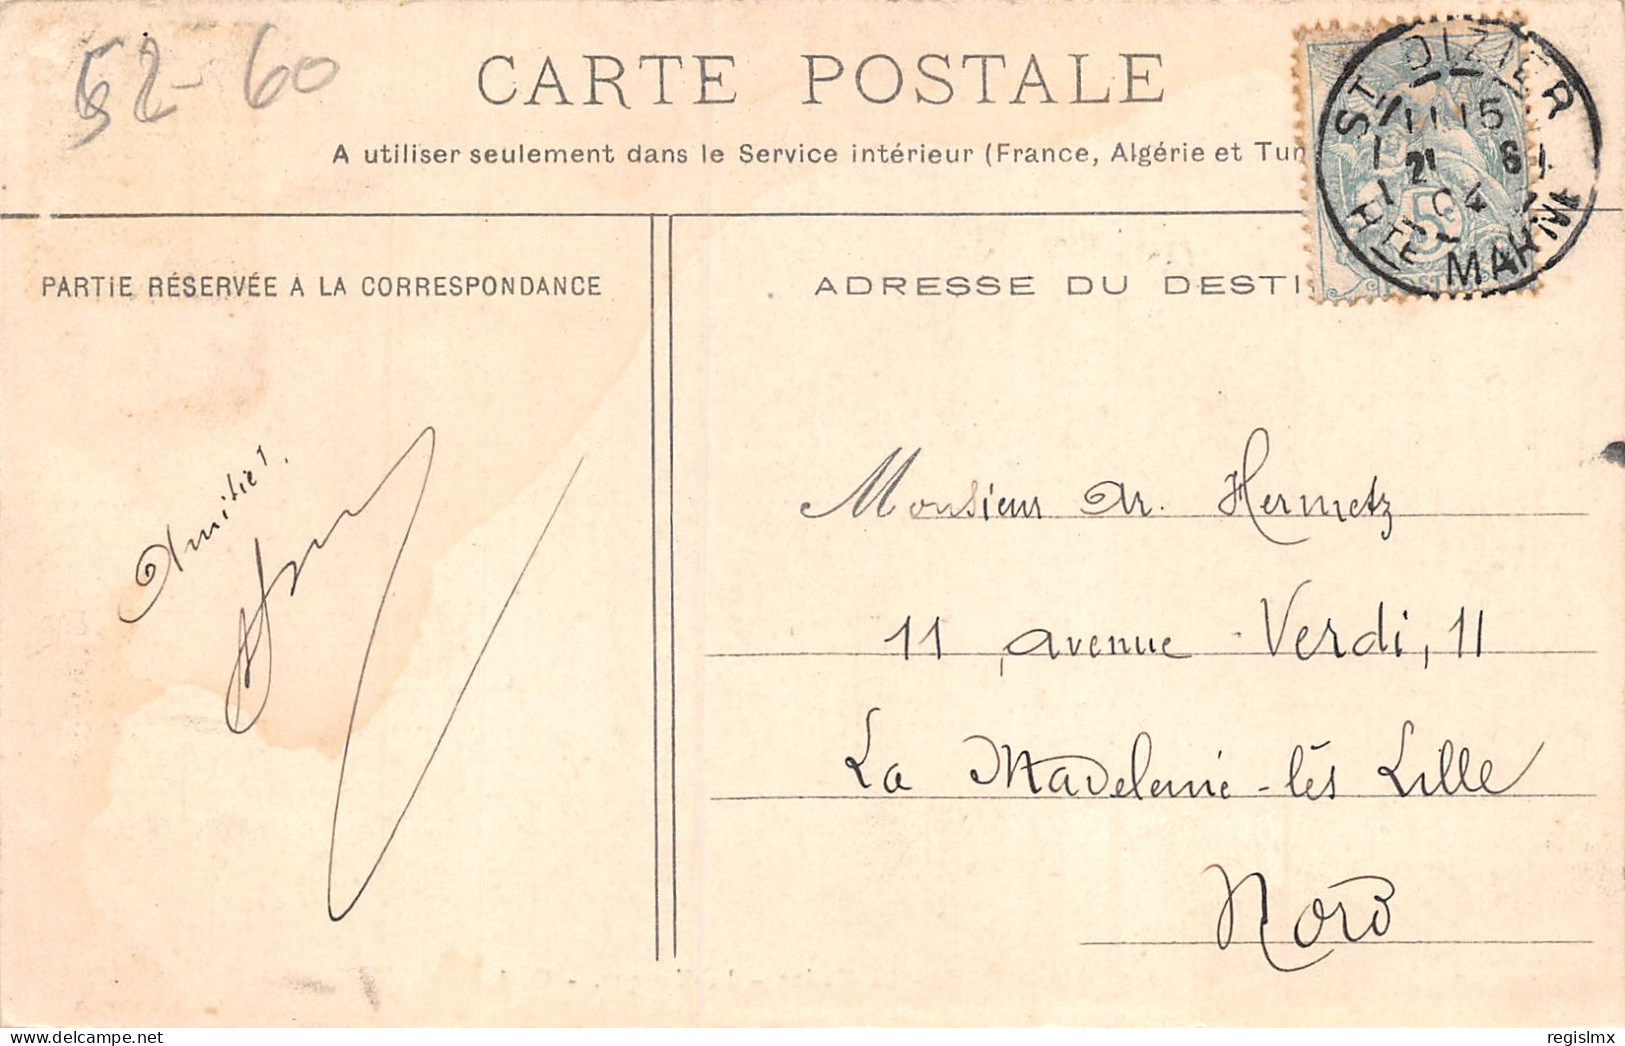 52-60
CARTE POSTALE
A utiliser seulement dans le Service intérieur (France, Algérie et Tun
PARTIE RÉSERVÉE A LA CORRESPONDANCE
ADRESSE DU DESTI
ST DIZIER
11 15
21 6
04
HTE MARNE
5c
POSTES
Amitiés.
Monsieur Ar. Hermetz
11, avenue Verdi, 11
La Madeleine-lès Lille
Nord
delcampe.net
regislmx